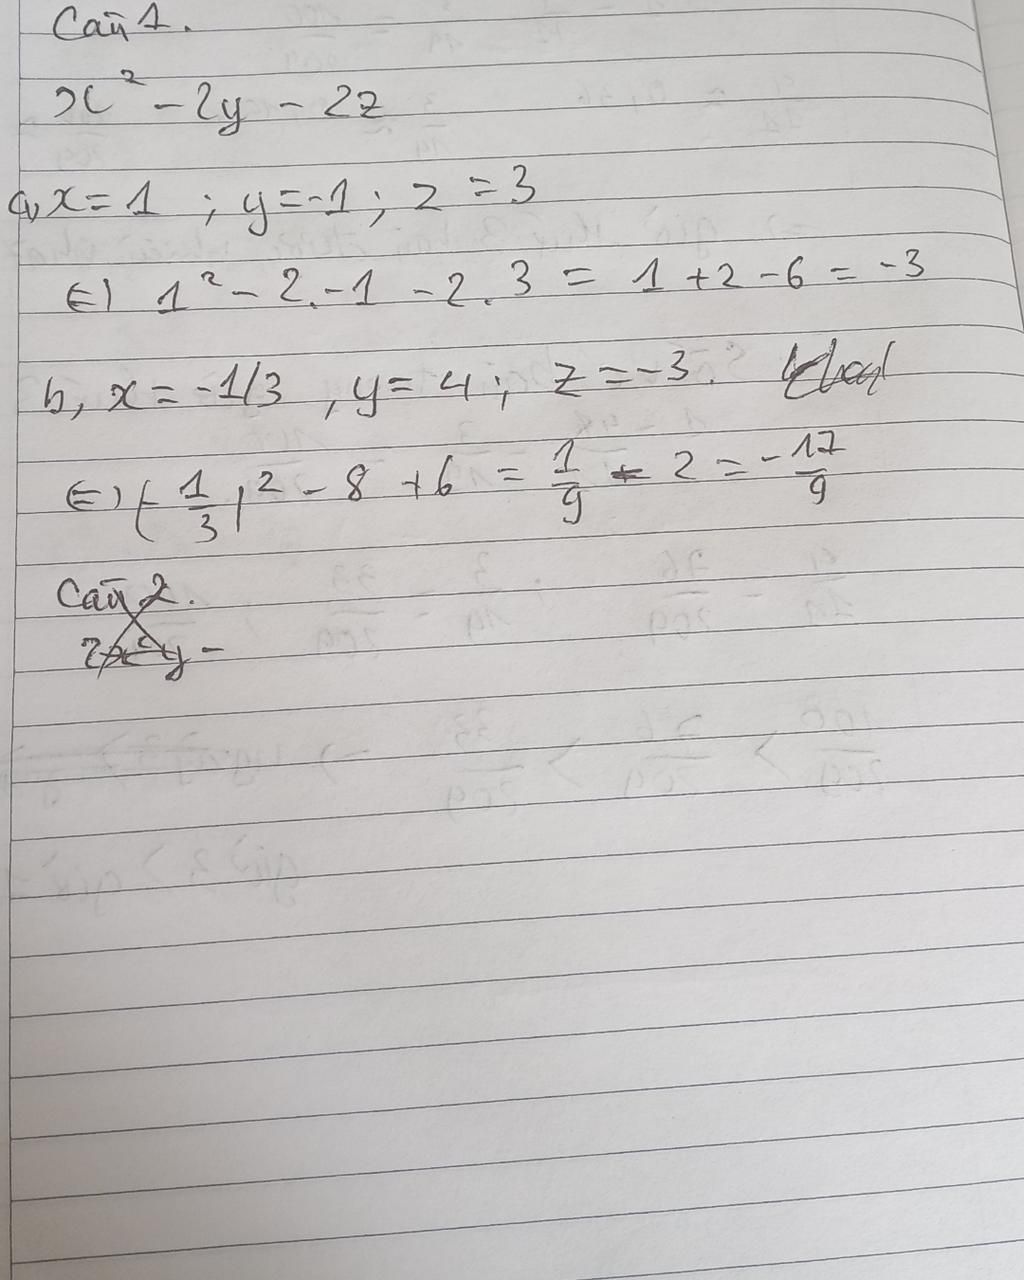 Câu 1.
x² - 2y - 2z
a, x = 1 ; y = -1 ; z = 3
(=) 1² - 2.-1 - 2.3 = 1 + 2 - 6 = -3
b, x = -1/3 , y = 4 ; z = -3.
(=) (-1/3)² - 8 + 6 = 1/9 - 2 = -17/9
Câu 2.